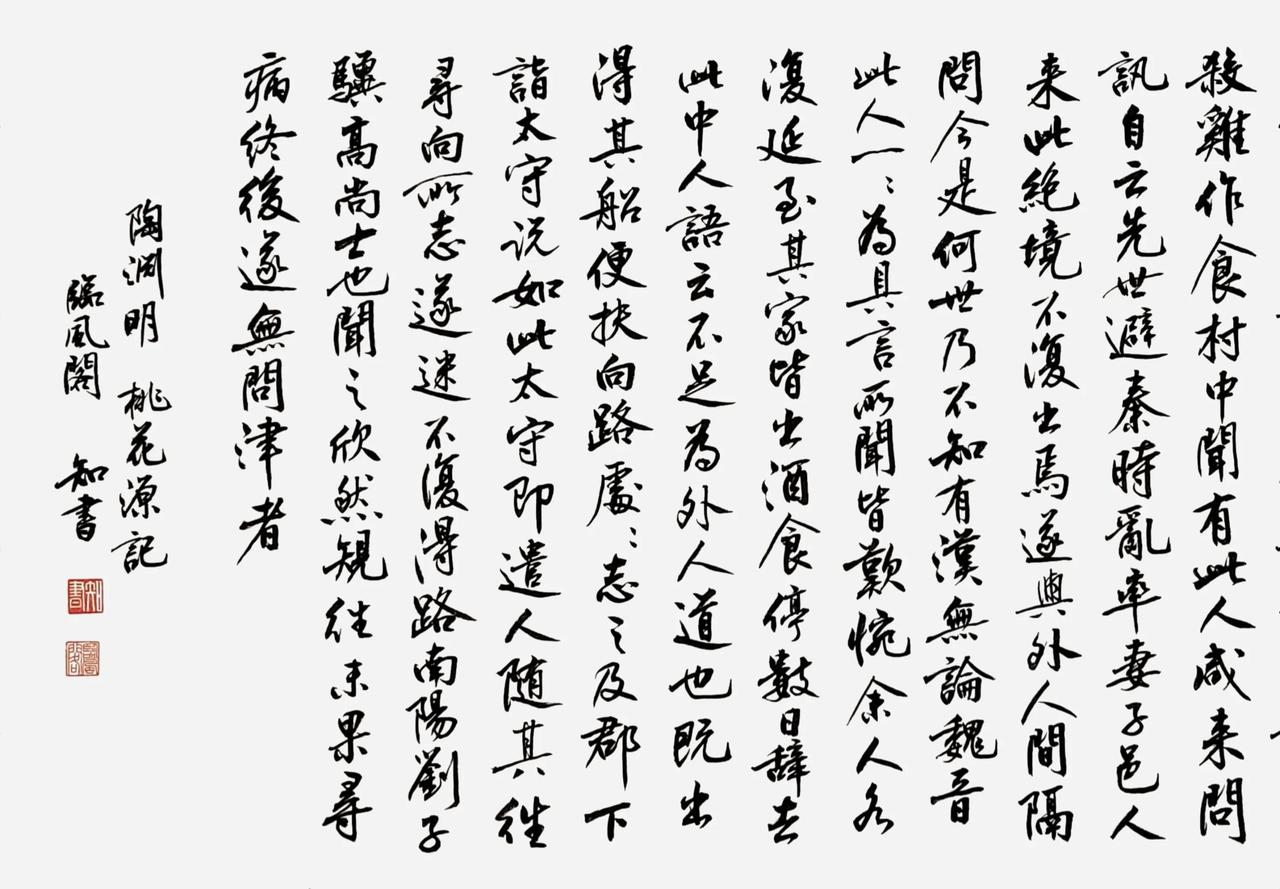 殺雞作食村中聞有此人咸来問
訊自云先世避秦時亂率妻子邑人
来此絕境不復出焉遂與外人間隔
問今是何世乃不知有漢無論魏晉
此人一〻為具言所聞皆歎惋余人各
復延至其家皆出酒食停數日辞去
此中人語云不足為外人道也既出
得其船便扶向路處〻志之及郡下
詣太守说如此太守即遣人随其往
尋向所志遂迷不復得路南陽劉子
驥高尚士也聞之欣然規往未果尋
病終後遂無問津者
陶渊明 桃花源記
臨風閣 知書
知書